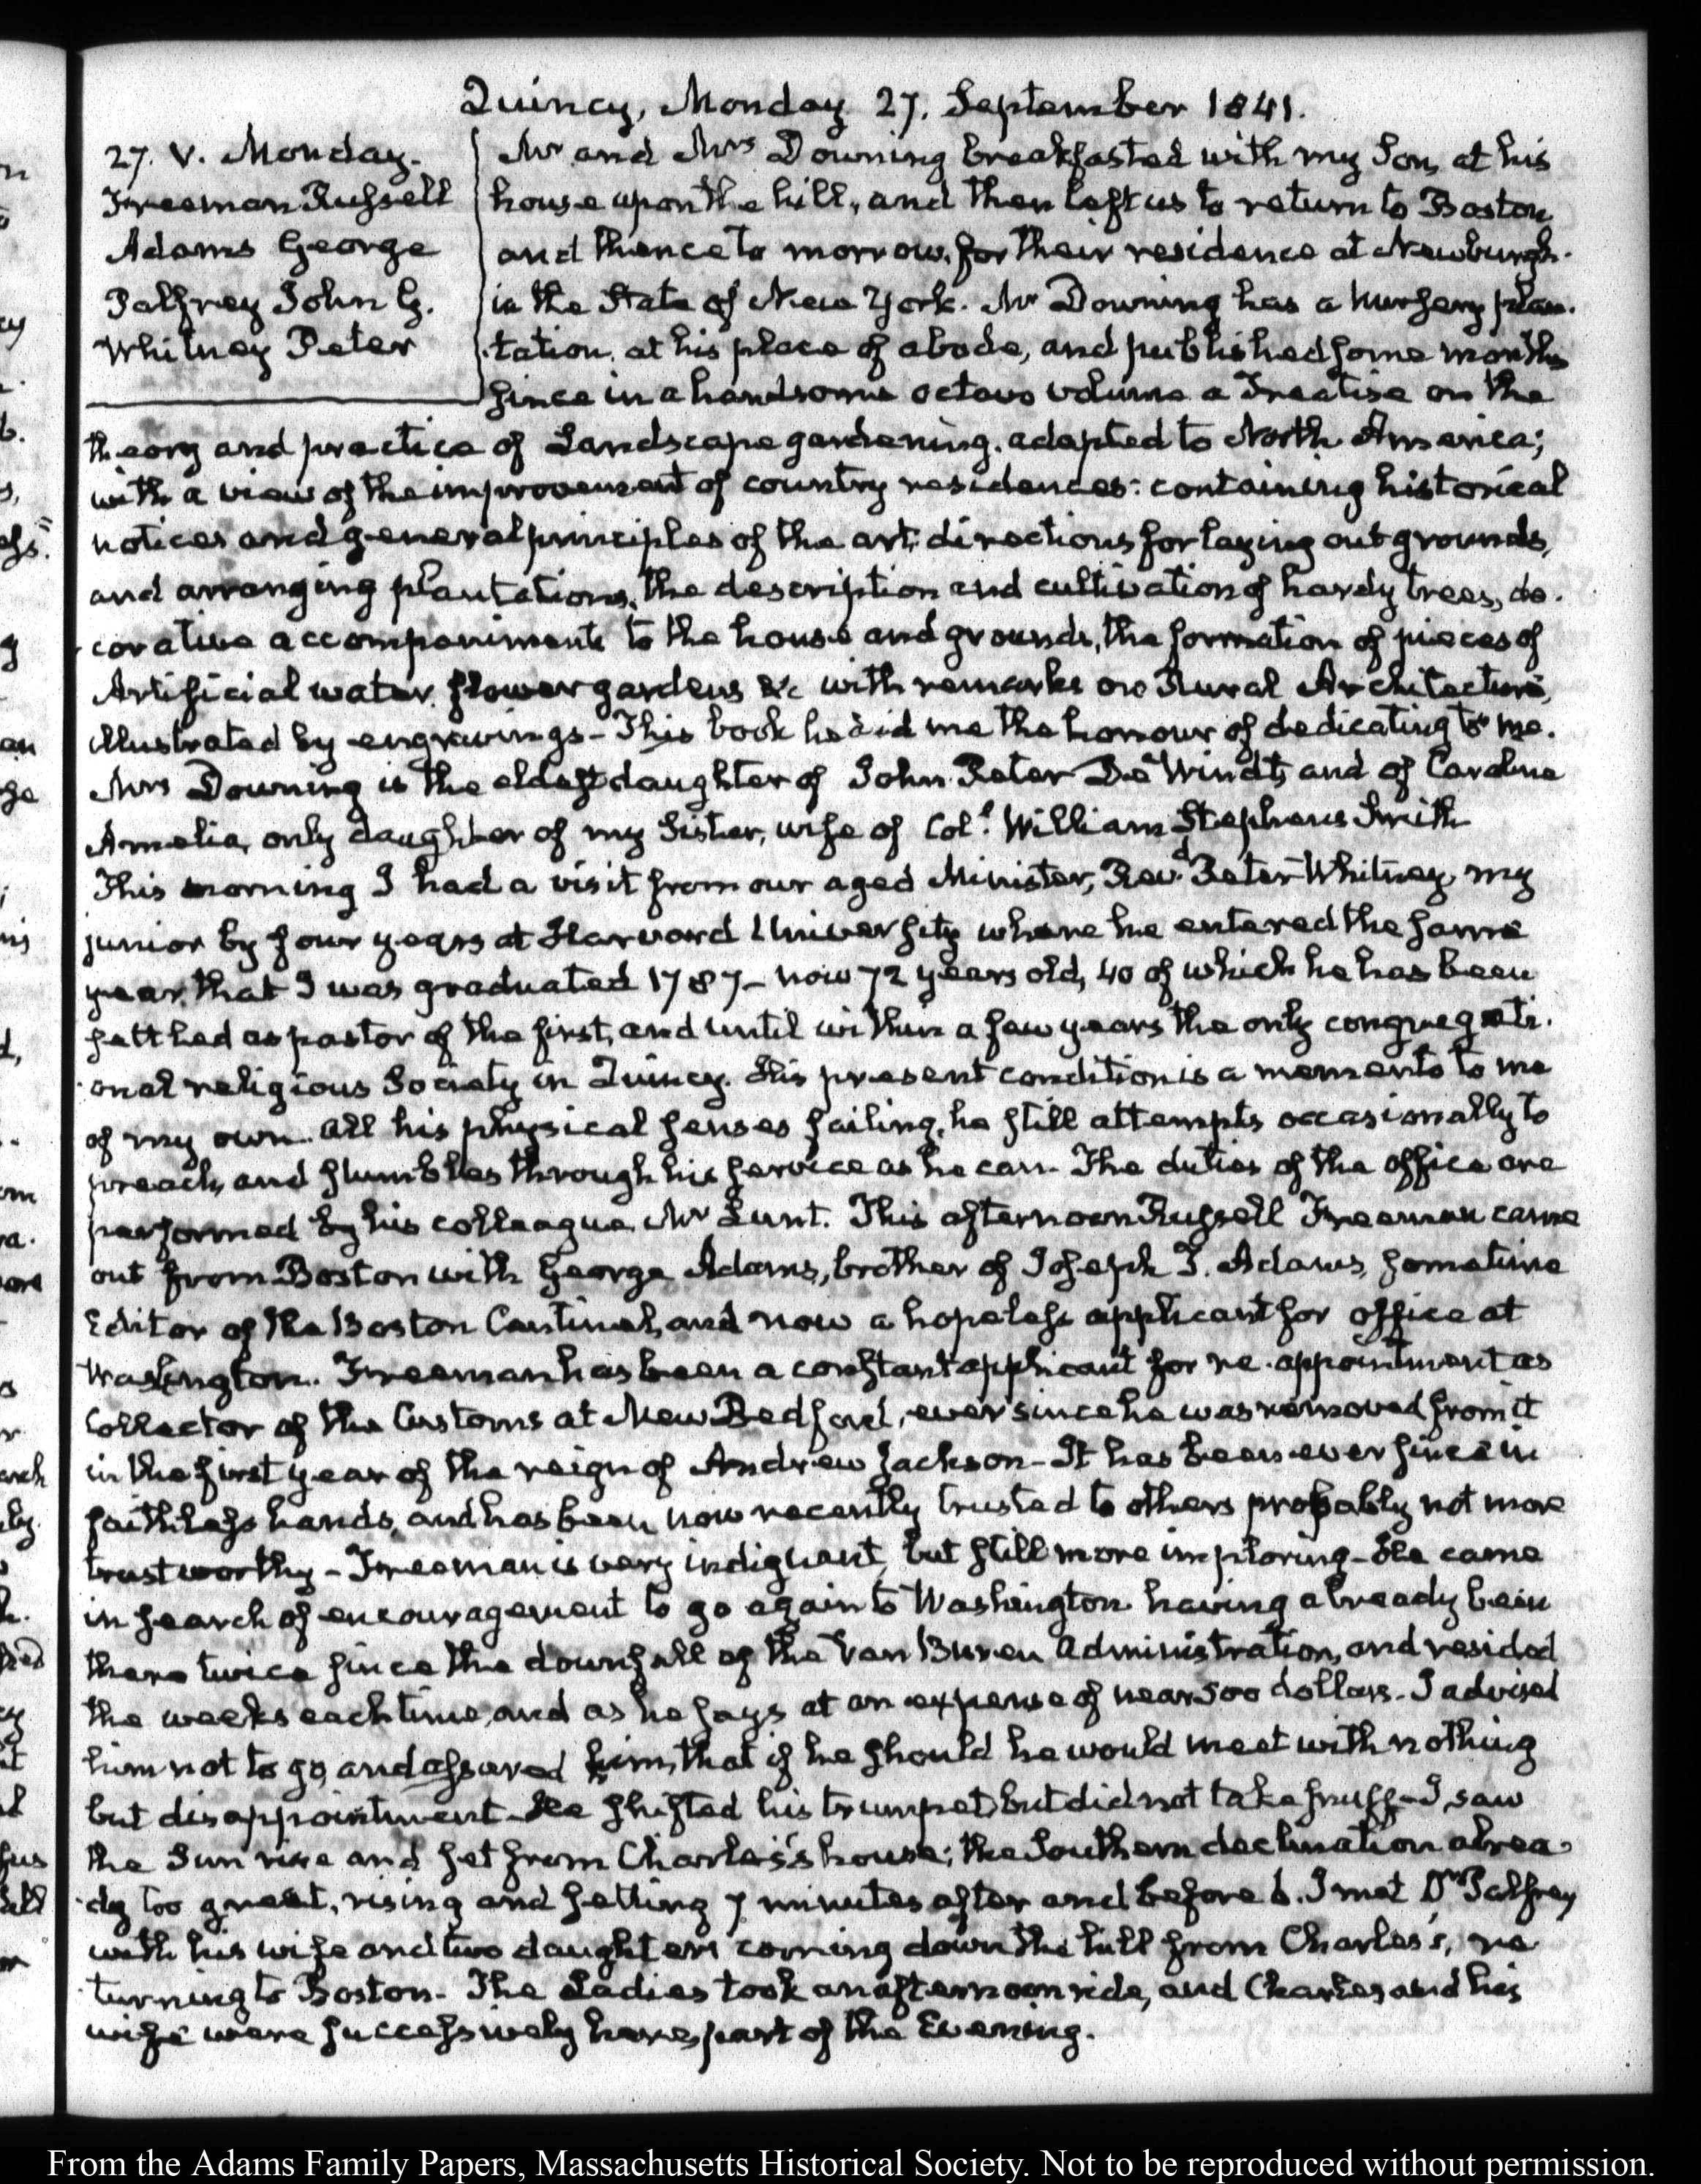 Quincy, Monday 27. September 1841.
27. V. Monday.
Freeman Russell
Adams George
Palfrey John G.
Whitney Peter
Mr and Mrs Downing breakfasted with my Son, at his
house upon the hill, and then left us to return to Boston
and thence to morrow, for their residence at Newburgh.
in the State of New York. Mr Downing has a nursery plan-
tation, at his place of abode, and published some months
since in a handsome octavo volume a Treatise on the
theory and practice of Landscape gardening. adapted to North America;
with a view of the improvement of country residences: containing historical
notices and general principles of the art; directions for laying out grounds,
and arranging plantations, the description and cultivation of hardy trees, de-
corative accompaniments to the house and grounds, the formation of pieces of
Artificial water, flower gardens &c with remarks on Rural Architecture,
illustrated by engravings - This book he did me the honour of dedicating to me.
Mrs Downing is the eldest daughter of John Peter De Windt, and of Caroline
Amelia, only daughter of my Sister, wife of Col. William Stephens Smith
This morning I had a visit from our aged Minister, Revd Peter Whitney, my
junior by four years at Harvard University where he entered the same
year, that I was graduated 1787 - now 72 years old, 40 of which he has been
settled as pastor of the first, and until within a few years the only congregati-
onal religious Society in Quincy. His present condition is a memento to me
of my own. All his physical senses failing, he still attempts occasionally to
preach, and stumbles through his service as he can. The duties of the office are
performed by his colleague, Mr Lunt. This afternoon Russell Freeman came
out from Boston with George Adams, brother of Joseph T. Adams, sometime
Editor of the Boston Centinel, and now a hopeless applicant for office at
Washington. Freeman has been a constant applicant for re-appointment as
Collector of the Customs at New Bedford, ever since he was removed from it
in the first year of the reign of Andrew Jackson - It has been ever since in
faithless hands, and has been now recently trusted to others probably not more
trustworthy - Freeman is very indignant, but still more imploring - He came
in search of encouragement to go again to Washington having already been
there twice since the downfall of the Van Buren Administration, and resided
the weeks each time, and as he says at an expense of near 500 dollars. I advised
him not to go, and assured him, that if he should he would meet with nothing
but disappointment - He shifted his trumpet, but did not take snuff - I saw
the Sun rise and set from Charles's house; the Southern declination alrea-
dy too great, rising and setting 7 minutes after and before 6. I met Dr Palfrey
with his wife and two daughters coming down the hill from Charles's, re-
turning to Boston. The Ladies took an afternoon ride, and Charles and his
wife were successively here, part of the Evening.
From the Adams Family Papers, Massachusetts Historical Society. Not to be reproduced without permission.